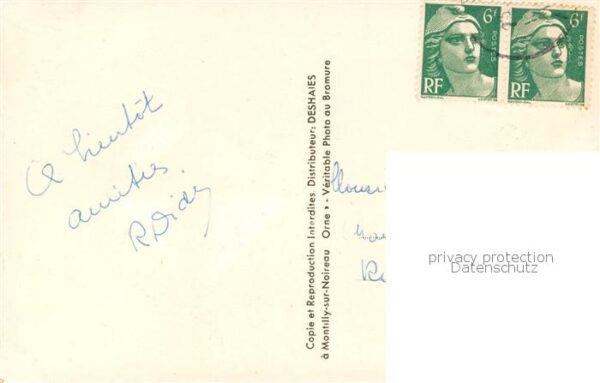 6F
POSTES
RF
6F
POSTES
RF
A bientôt
amitiés
Copie et Reproduction Interdites. Distributeur: DESHAIES
à Montilly-sur-Noireau Orne - Véritable Photo au Bromure
privacy protection
Datenschutz